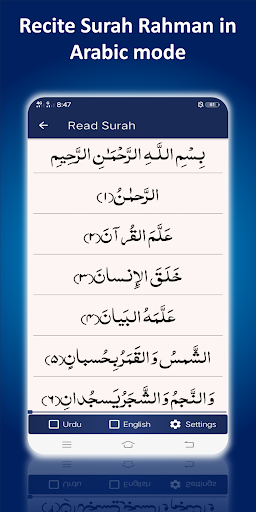 Recite Surah Rahman in
Arabic mode
8:47
Read Surah
بِسْمِ اللَّهِ الرَّحْمَٰنِ الرَّحِيمِ
الرَّحْمَٰنُ ﴿١﴾
عَلَّمَ الْقُرْآنَ ﴿٢﴾
خَلَقَ الْإِنسَانَ ﴿٣﴾
عَلَّمَهُ الْبَيَانَ ﴿٤﴾
الشَّمْسُ وَالْقَمَرُ بِحُسْبَانٍ ﴿٥﴾
وَالنَّجْمُ وَالشَّجَرُ يَسْجُدَانِ ﴿٦﴾
Urdu English Settings